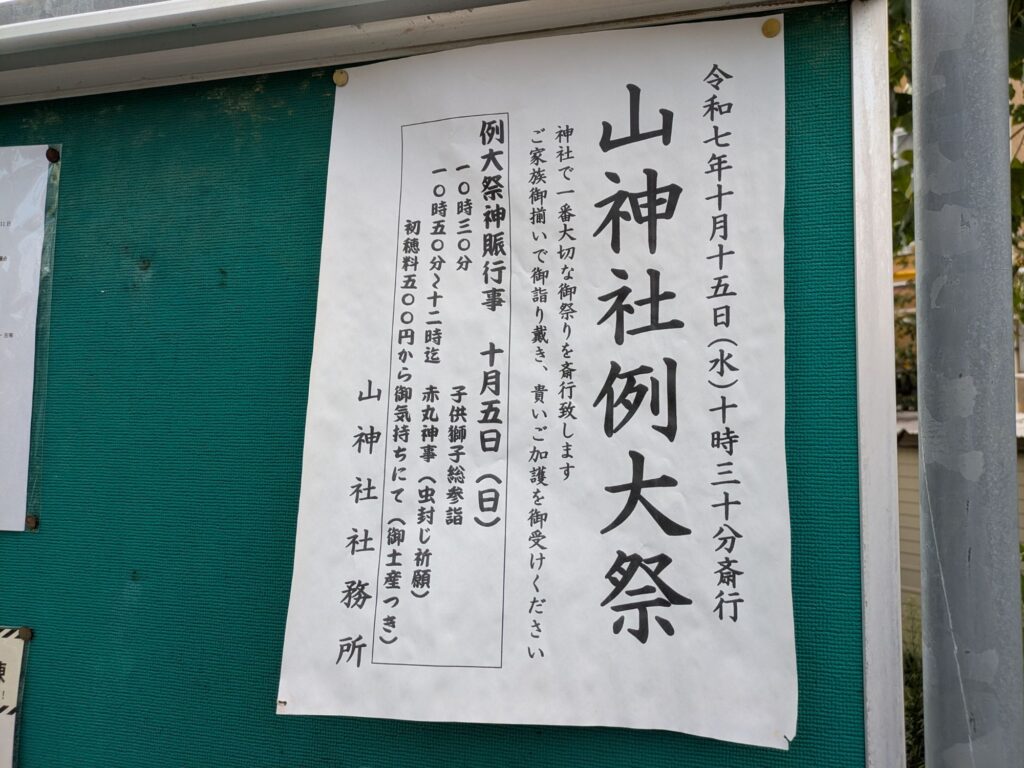 令和七年十月十五日(水)十時三十分斎行
山神社例大祭
神社で一番大切な御祭りを斎行致します
ご家族御揃いで御詣り戴き、貴いご加護を御受けください
例大祭神賑行事 十月五日(日)
一〇時三〇分 子供獅子総参詣
一〇時五〇分~十二時迄 赤丸神事(虫封じ祈願)
初穂料五〇〇円から御気持ちにて(御土産つき)
山神社社務所